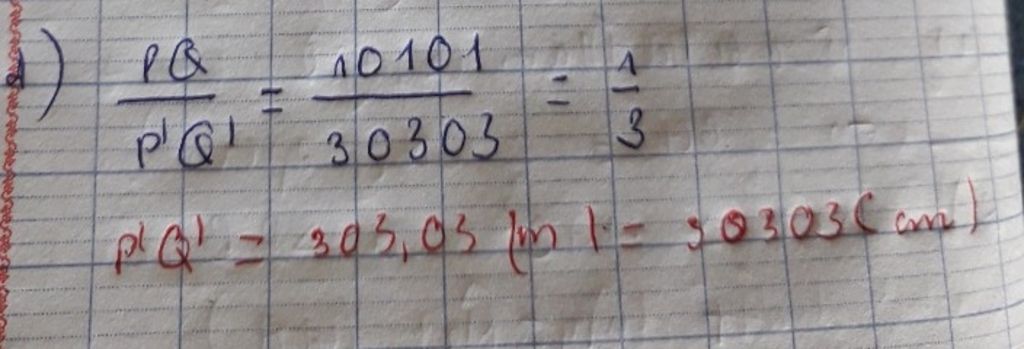 a) PQ/P'Q' = 10101/30303 = 1/3
P'Q' = 303,03 (m) = 30303 (cm)